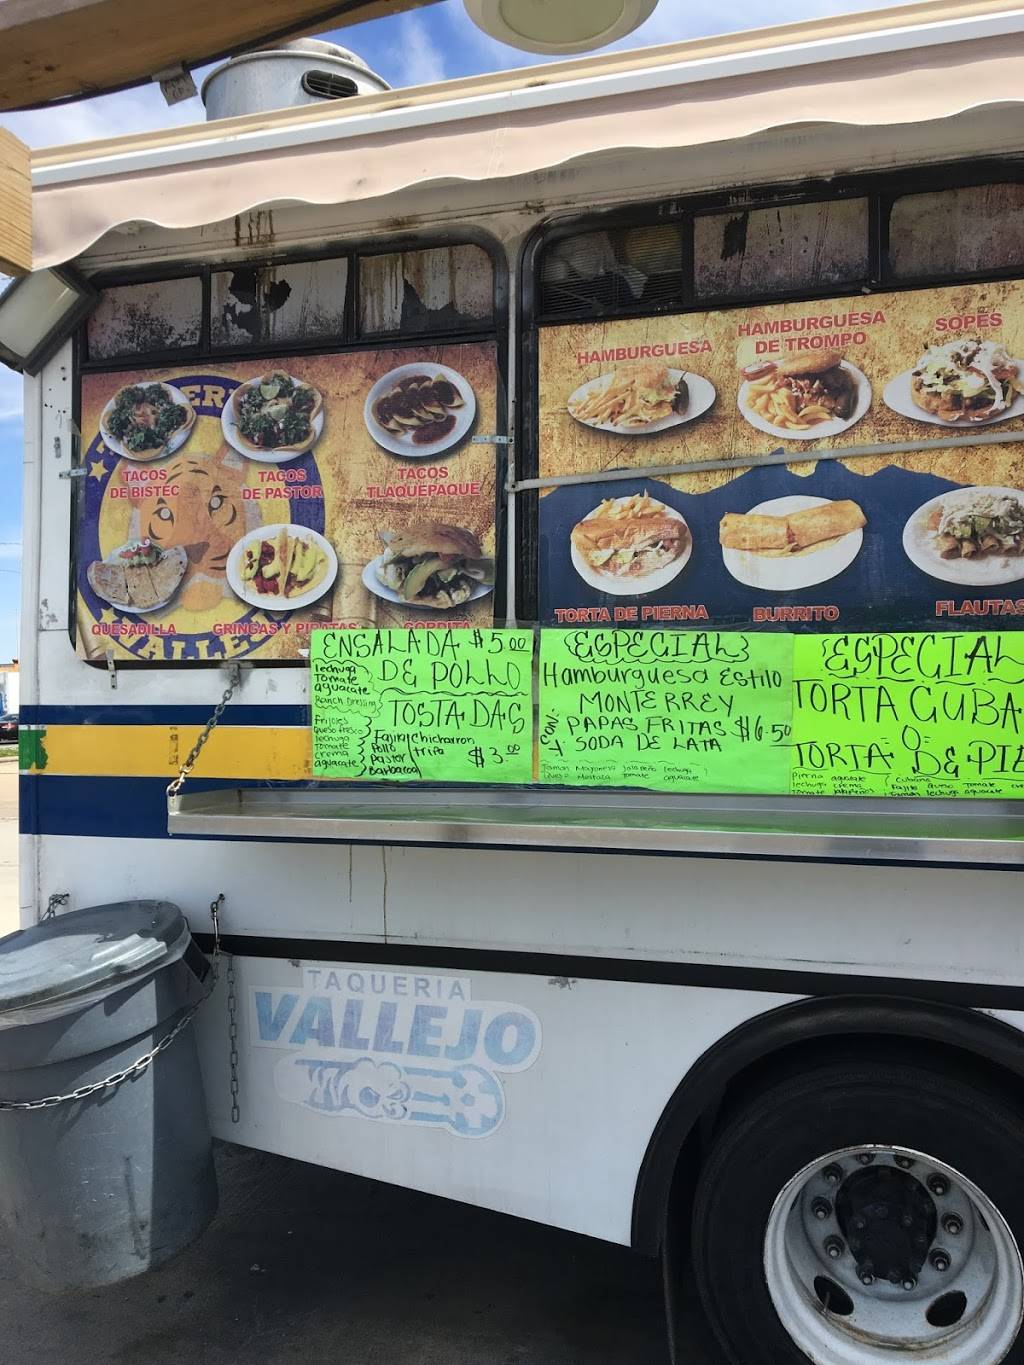 HAMBURGUESA
HAMBURGUESA
DE TROMPO
SOPES
TACOS
DE BISTEC
TACOS
DE PASTOR
TACOS
TLAQUEPAQUE
QUESADILLA
GRINGAS Y PIRATAS
GORDITA
TORTA DE PIERNA
BURRITO
FLAUTAS
ENSALADA $5.00
DE POLLO
lechuga
Tomate
aguacate
Ranch Dressing
TOSTADAS
$3.00
Frijoles
Queso fresco
lechuga
tomate
crema
aguacate
Fajita
Pollo
Pastor
Barbacoa
chicharron
tripa
ESPECIAL
Hamburguesa Estilo
MONTERREY
CON:
PAPAS FRITAS
Y SODA DE LATA
$6.50
Jamon Mayonesa Jalapeño lechuga
Queso Mostaza tomate aguacate
ESPECIAL
TORTA CUBA
O
TORTA DE PIE
Pierna aguacate
lechuga crema
Tomate Jalapeños
Cubana
Fajita Queso Tomate
Jamon lechuga aguacate
TAQUERIA
VALLEJO